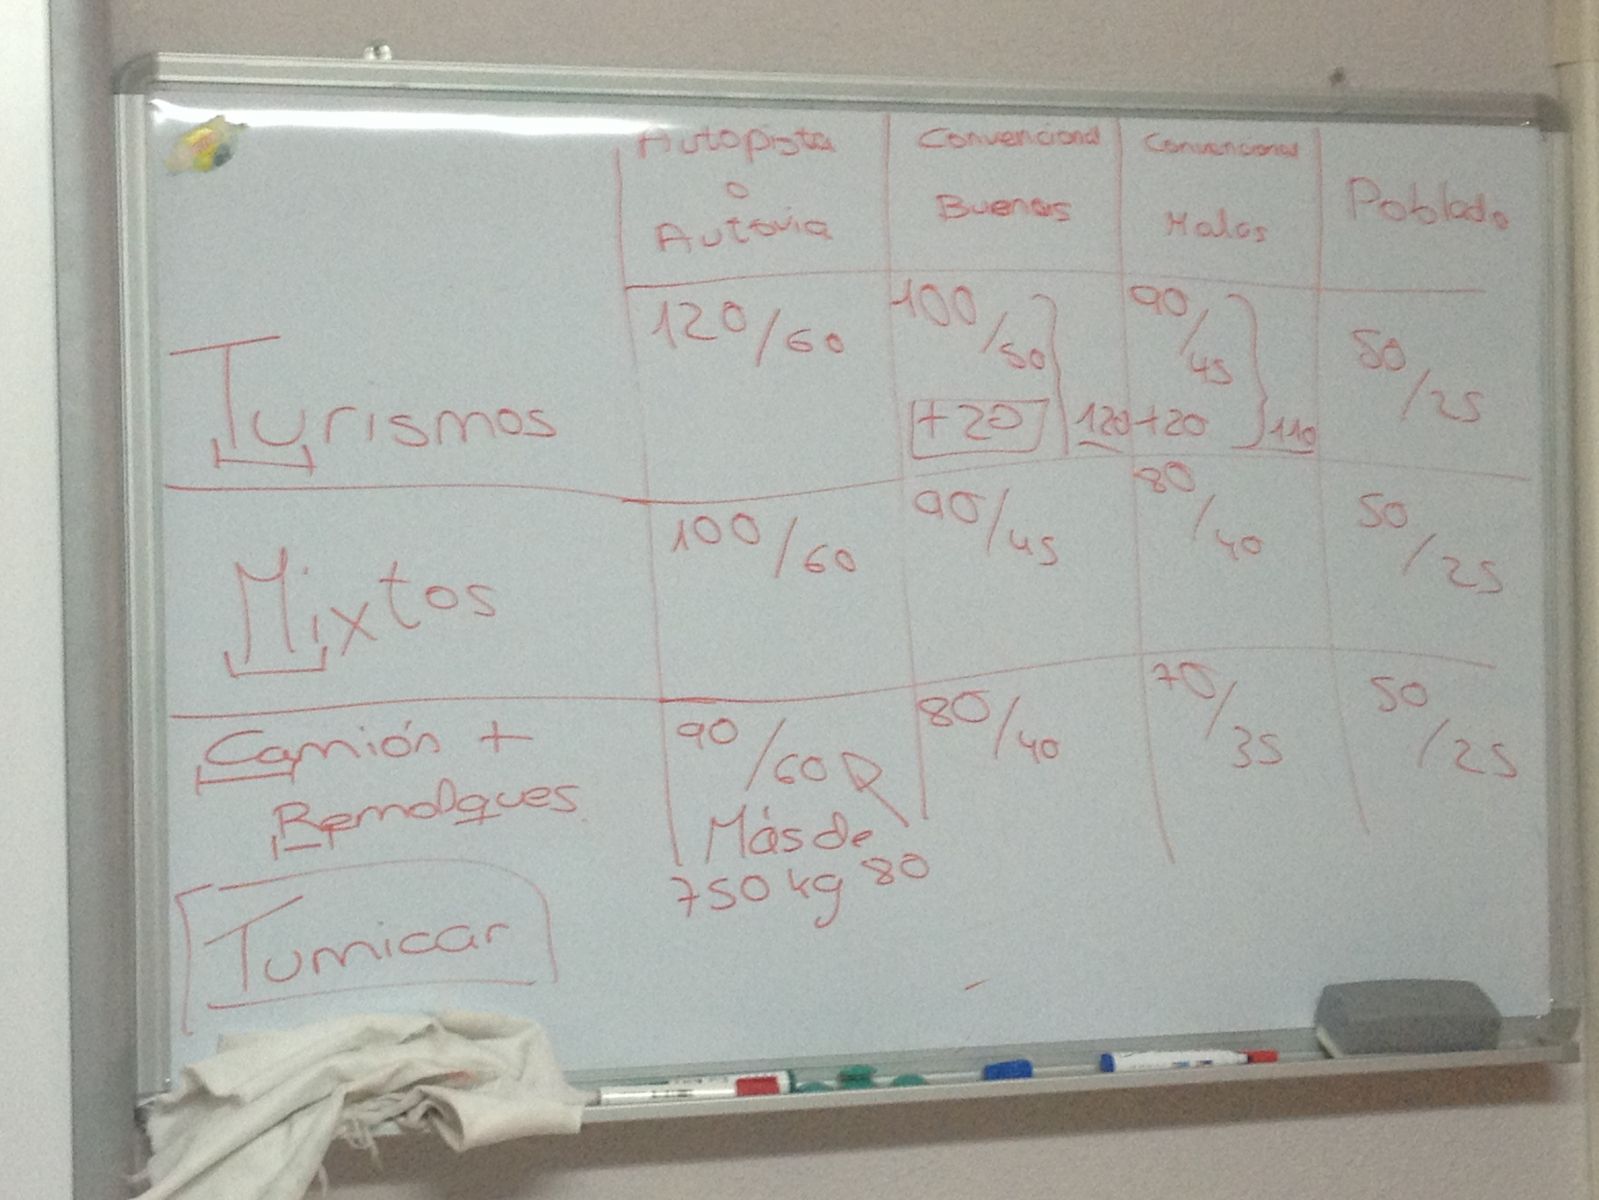 Autopista
o
Autovia
Convencional
Buenas
Convencional
Malas
Poblado
Turismos
120/60
100/50
+20
120
90/45
+20
110
50/25
Mixtos
100/60
90/45
80/40
50/25
Camión +
Remolques
90/60
Más de
750 kg 80
80/40
70/35
50/25
Tumicar